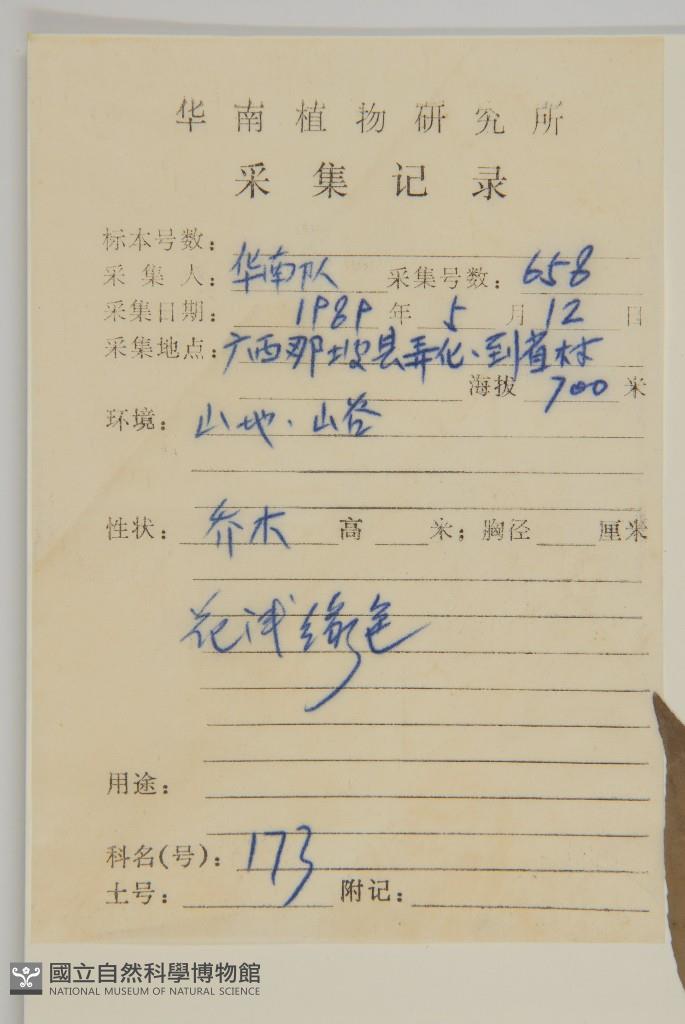 华南植物研究所
采集记录
标本号数：
采集人：华南队 采集号数：658
采集日期：1989年5月12日
采集地点：广西那坡县弄化、到省村
海拔700米
环境：山地、山谷
性状：乔木 高 米；胸径 厘米
花浅绿色
用途：
科名(号)：173
土号： 附记：
國立自然科學博物館
NATIONAL MUSEUM OF NATURAL SCIENCE